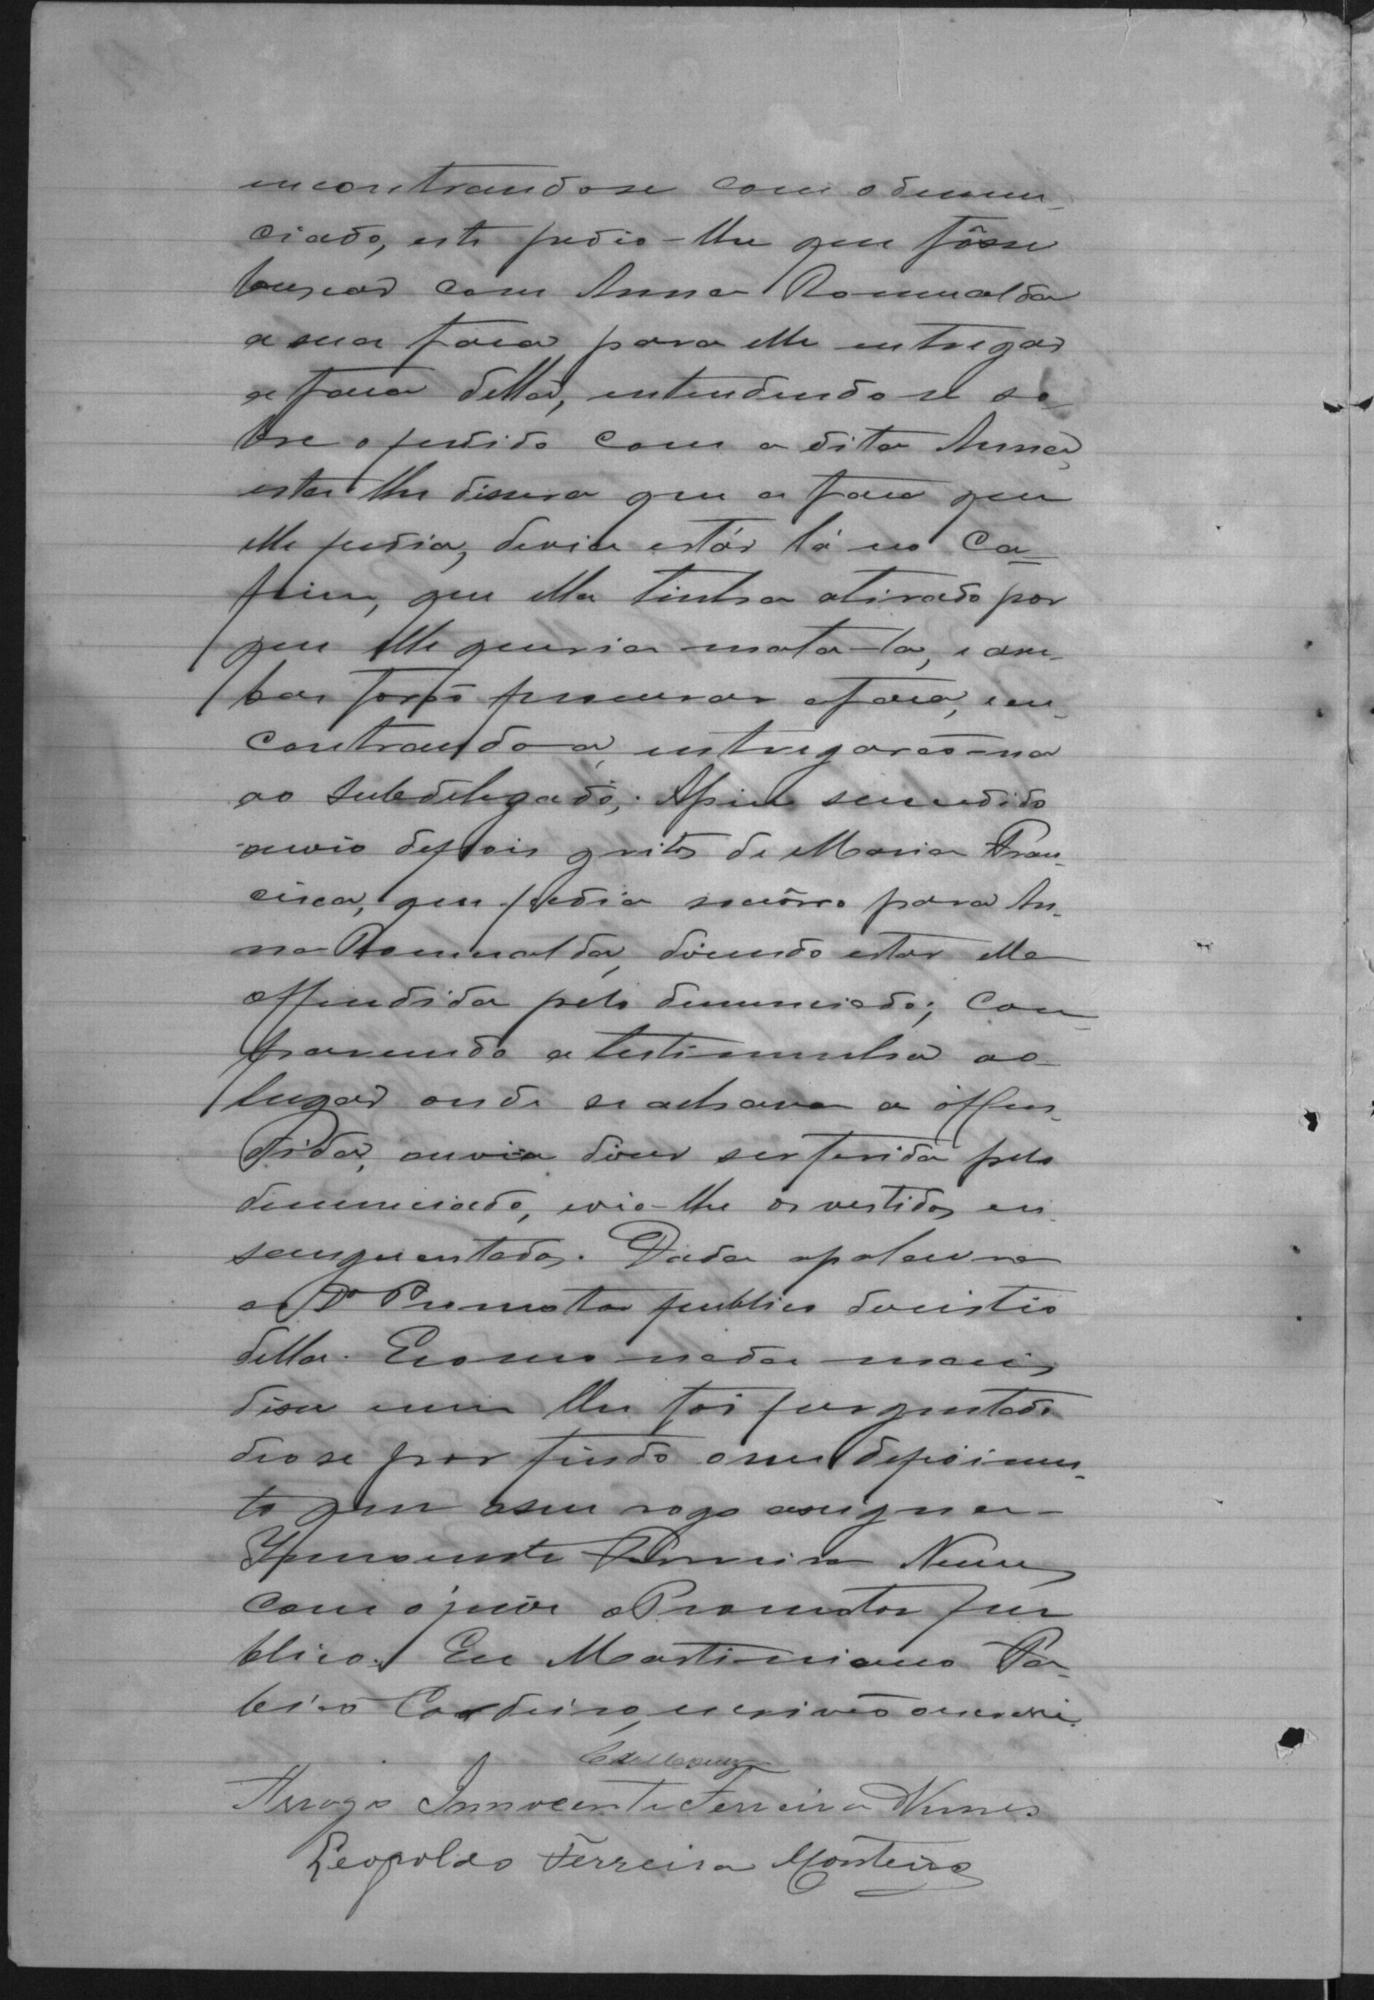 encontrandose com o denun-
ciado, este pedio-lhe que fôsse
buscar com Anna Romualda
a sua faca para elle entregar
a faca della, entendendo se so
bre o pedido com a dita Anna,
esta lhe dissera que a faca que
elle pedia, devia estár lá no Ca-
pim, que ella tinha atirado por
que elle queria mata-la, e am-
bas forão procurar a faca, e en-
contrando a, entregarão-na
ao Subdelegado;
ouvio depois gritos de Maria Fran-
cisca, que pedia socôrro para An-
na Romualda, dizendo estar ella
offendida pelo denunciado; Com-
parecendo a testimunha ao
lugar onde se achava a offen-
dida, ouvio dizer ser ferida pelo
denunciado, e vio-lhe os vestidos en-
sanguentados. Dada a palavra
ao Dr Promotor publico desistio
della. E como nada mais
disse nem lhe foi perguntado
deo se por findo o seu depoimen-
to que a seu rogo assigna
Innocente Ferreira Nunes
com o juiz o Promotor pu
blico. Eu Martiniano Ra-
beiro Cordeiro, escrivão o escrevi.
Arrogo Innocente Ferreira Nunes
Leopoldo Ferreira Monteiro